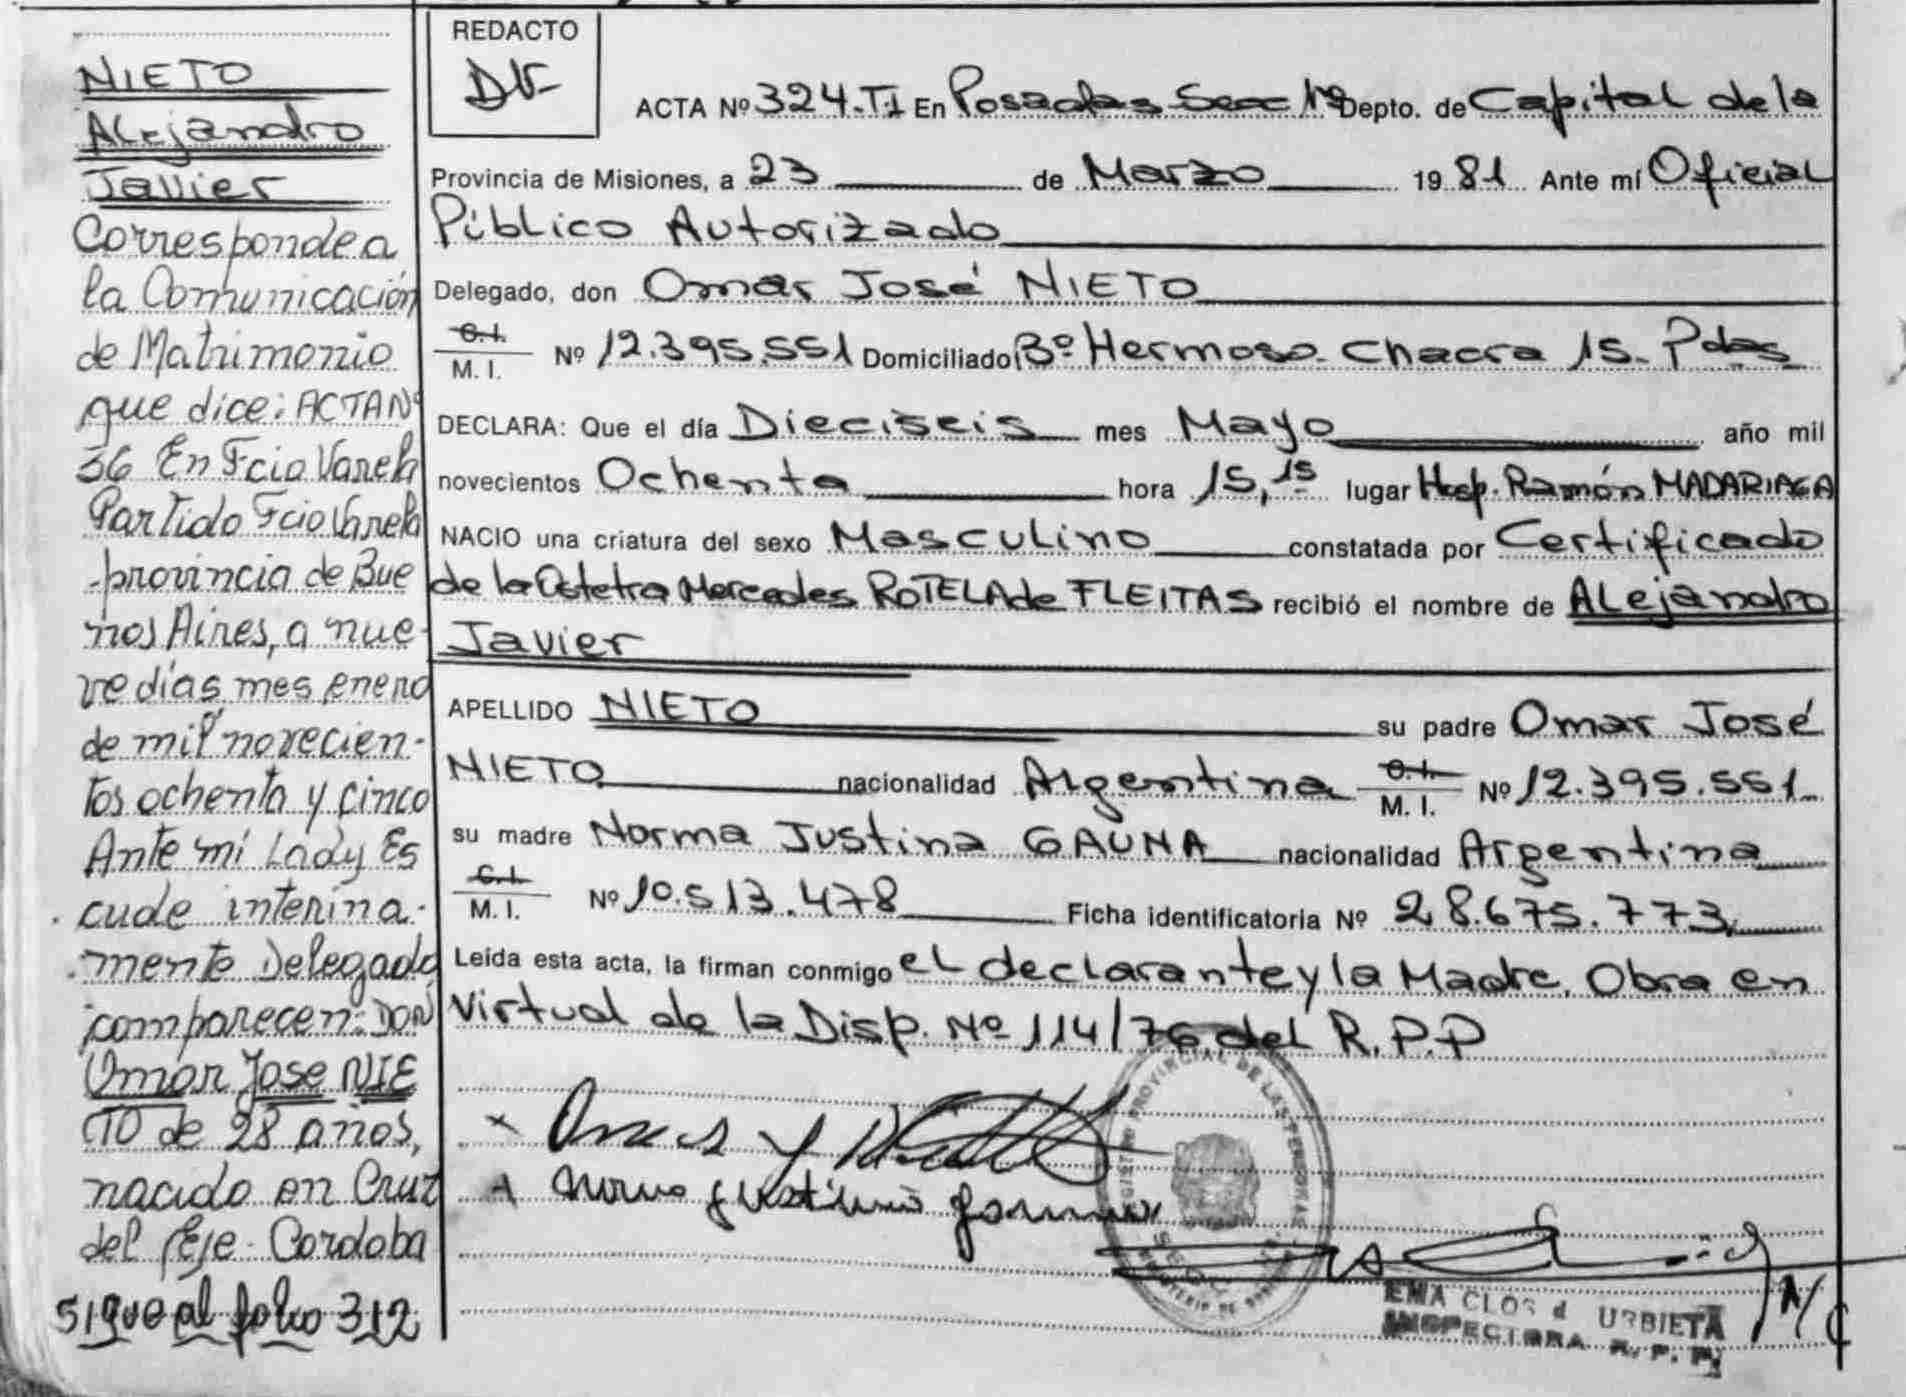 NIETO
Alejandro
Javier
Corresponde a
la Comunicación
de Matrimonio
que dice: ACTA Nº
36 En Fcio Varela
Partido Fcio Varela
provincia de Bue
nos Aires, a nue-
ve días, mes, enero
de mil novecien-
tos ochenta y cinco
Ante mí Lady Es
cude interina-
mente Delegado
comparecen: DON
Omar Jose NIE
TO de 28 años,
nacido en Cruz
del Eje - Cordoba
sigue al folio 312
REDACTO
ACTA Nº 324.T.I En Posadas Secc 1ª Depto. de Capital de la
Provincia de Misiones, a 23 de Marzo 1981 Ante mí Oficial
Público Autorizado
Delegado, don Omar José NIETO
C.I.
M. I. Nº 12.395.551 Domiciliado Bº Hermoso. Chacra 15. Pdas
DECLARA: Que el día Dieciseis mes Mayo año mil
novecientos Ochenta hora 15,15 lugar Hosp. Ramón MADARIAGA
NACIO una criatura del sexo Masculino constatada por Certificado
de la Ostetra Mercedes ROTELA de FLEITAS recibió el nombre de Alejandro
Javier
APELLIDO NIETO su padre Omar José
NIETO nacionalidad Argentina C.I. M. I. Nº 12.395.551
su madre Norma Justina GAUNA nacionalidad Argentina
C.I.
M. I. Nº 10.513.478 Ficha identificatoria Nº 28.675.773
Leída esta acta, la firman conmigo el declarante y la Madre. Obra en
virtual de la Disp. Nº 114/76 del R.P.P
REGISTRO PROVINCIAL DE LAS PERSONAS
EMA CLOS d URBIETA
INSPECTORA R. P. P.